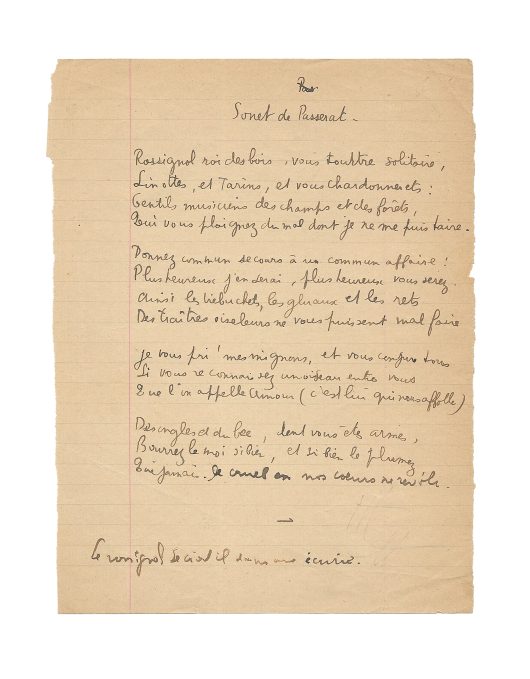 Pour
Sonet de Passerat -
Rossignol roi des bois, vous tourtre solitaire,
Linottes, et Tarins, et vous chardonnerets :
Gentils musiciens des champs et des forêts,
Qui vous plaignez du mal dont je ne me puis taire.
Donnez commun secours à un commun affaire !
Plus heureux j'en serai, plus heureux vous serez.
Ainsi les trebuchets, les gluaux et les rets
Des traîtres oiseleurs ne vous puissent mal faire
Je vous pri' mes mignons, et vous conjure tous
Si vous reconnaissez un oiseau entre vous
Que l'on appelle Amour (c'est lui qui nous affolle)
Des ongles et du bec, dont vous êtes armés,
Bourrez le moi si bien, et si bien le plumez
Que jamais le cruel en nos cœurs ne revole.
Le rossignol écurie.